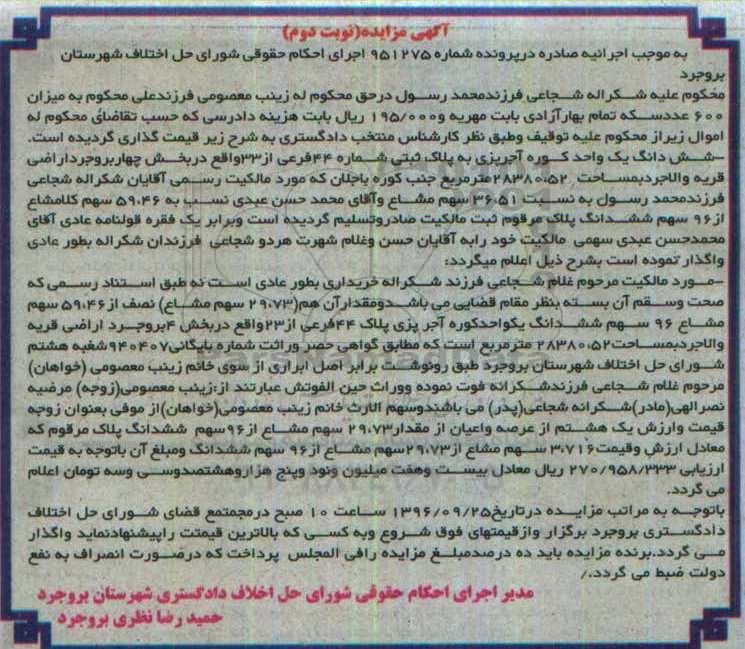 آگهی مزایده(نوبت دوم)
به موجب اجرائیه صادره درپرونده شماره ۹۵۱۲۷۵ اجرای احکام حقوقی شورای حل اختلاف شهرستان
بروجرد
محکوم علیه شکراله شجاعی فرزندمحمد رسول درحق محکوم له زینب معصومی فرزندعلی محکوم به میزان
۶۰۰ عددسکه تمام بهارآزادی بابت مهریه و۱۹۵/۰۰۰ ریال بابت هزینه دادرسی که حسب تقاضای محکوم له
اموال زیراز محکوم علیه توقیف وطبق نظر کارشناس منتخب دادگستری به شرح زیر قیمت گذاری گردیده است.
-شش دانگ یک واحد کوره آجرپزی به پلاک ثبتی شماره ۴۴فرعی از۲۳واقع دربخش چهاربروجرداراضی
قریه والاجردبمساحت ۲۸۳۸۰.۵۲مترمربع جنب کوره باجلان که مورد مالکیت رسمی آقایان شکراله شجاعی
فرزندمحمد رسول به نسبت ۳۶.۵۱ سهم مشاع وآقای محمد حسن عبدی نسب به ۵۹.۴۶ سهم کلامشاع
از۹۶ سهم ششدانگ پلاک مرقوم ثبت مالکیت صادروتسلیم گردیده است وبرابر یک فقره قولنامه عادی آقای
محمدحسن عبدی سهمی مالکیت خود رابه آقایان حسن وغلام شهرت هردو شجاعی فرزندان شکراله بطور عادی
واگذار نموده است بشرح ذیل اعلام میگردد:
-مورد مالکیت مرحوم غلام شجاعی فرزند شکراله خریداری بطور عادی است نه طبق استناد رسمی که
صحت وسقم آن بسته بنظر مقام قضایی می باشدومقدارآن هم(۲۹.۷۳ سهم مشاع) نصف از۵۹.۴۶ سهم
مشاع ۹۶ سهم ششدانگ یکواحدکوره آجر پزی پلاک ۴۴فرعی از۲۳واقع دربخش ۴بروجرد اراضی قریه
والاجردبمساحت۲۸۳۸۰.۵۲ مترمربع است که مطابق گواهی حصر وراثت شماره بایگانی۹۴۰۴۰۷شعبه هشتم
شورای حل اختلاف شهرستان بروجرد طبق رونوشت برابر اصل ابرازی از سوی خانم زینب معصومی (خواهان)
مرحوم غلام شجاعی فرزندشکرانه فوت نموده ووراث حین الفوتش عبارتند از:زینب معصومی(زوجه) مرضیه
نصرالهی(مادر)شکرانه شجاعی(پدر) می باشندوسهم الارث خانم زینب معصومی(خواهان)از موفی بعنوان زوجه
قیمت وارزش یک هشتم از عرصه واعیان از مقدار۲۹.۷۳ سهم مشاع از۹۶سهم ششدانگ پلاک مرقوم که
معادل ارزش وقیمت۳.۷۱۶ سهم مشاع از۲۹.۷۳سهم مشاع از۹۶ سهم ششدانگ ومبلغ آن باتوجه به قیمت
ارزیابی ۲۷۰/۹۵۸/۳۳۳ ریال معادل بیست وهفت میلیون ونود وپنج هزاروهشتصدوسی وسه تومان اعلام
می گردد.
باتوجه به مراتب مزایده درتاریخ۱۳۹۶/۰۹/۲۵ ساعت ۱۰ صبح درمجمتمع قضای شورای حل اختلاف
دادگستری بروجرد برگزار وازقیمتهای فوق شروع وبه کسی که بالاترین قیمتت راپیشنهادنماید واگذار
می گردد.برنده مزایده باید ده درصدمبلغ مزایده رافی المجلس پرداخت که درصورت انصراف به نفع
دولت ضبط می گردد./
مدیر اجرای احکام حقوقی شورای حل اخلاف دادگستری شهرستان بروجرد
حمید رضا نظری بروجرد